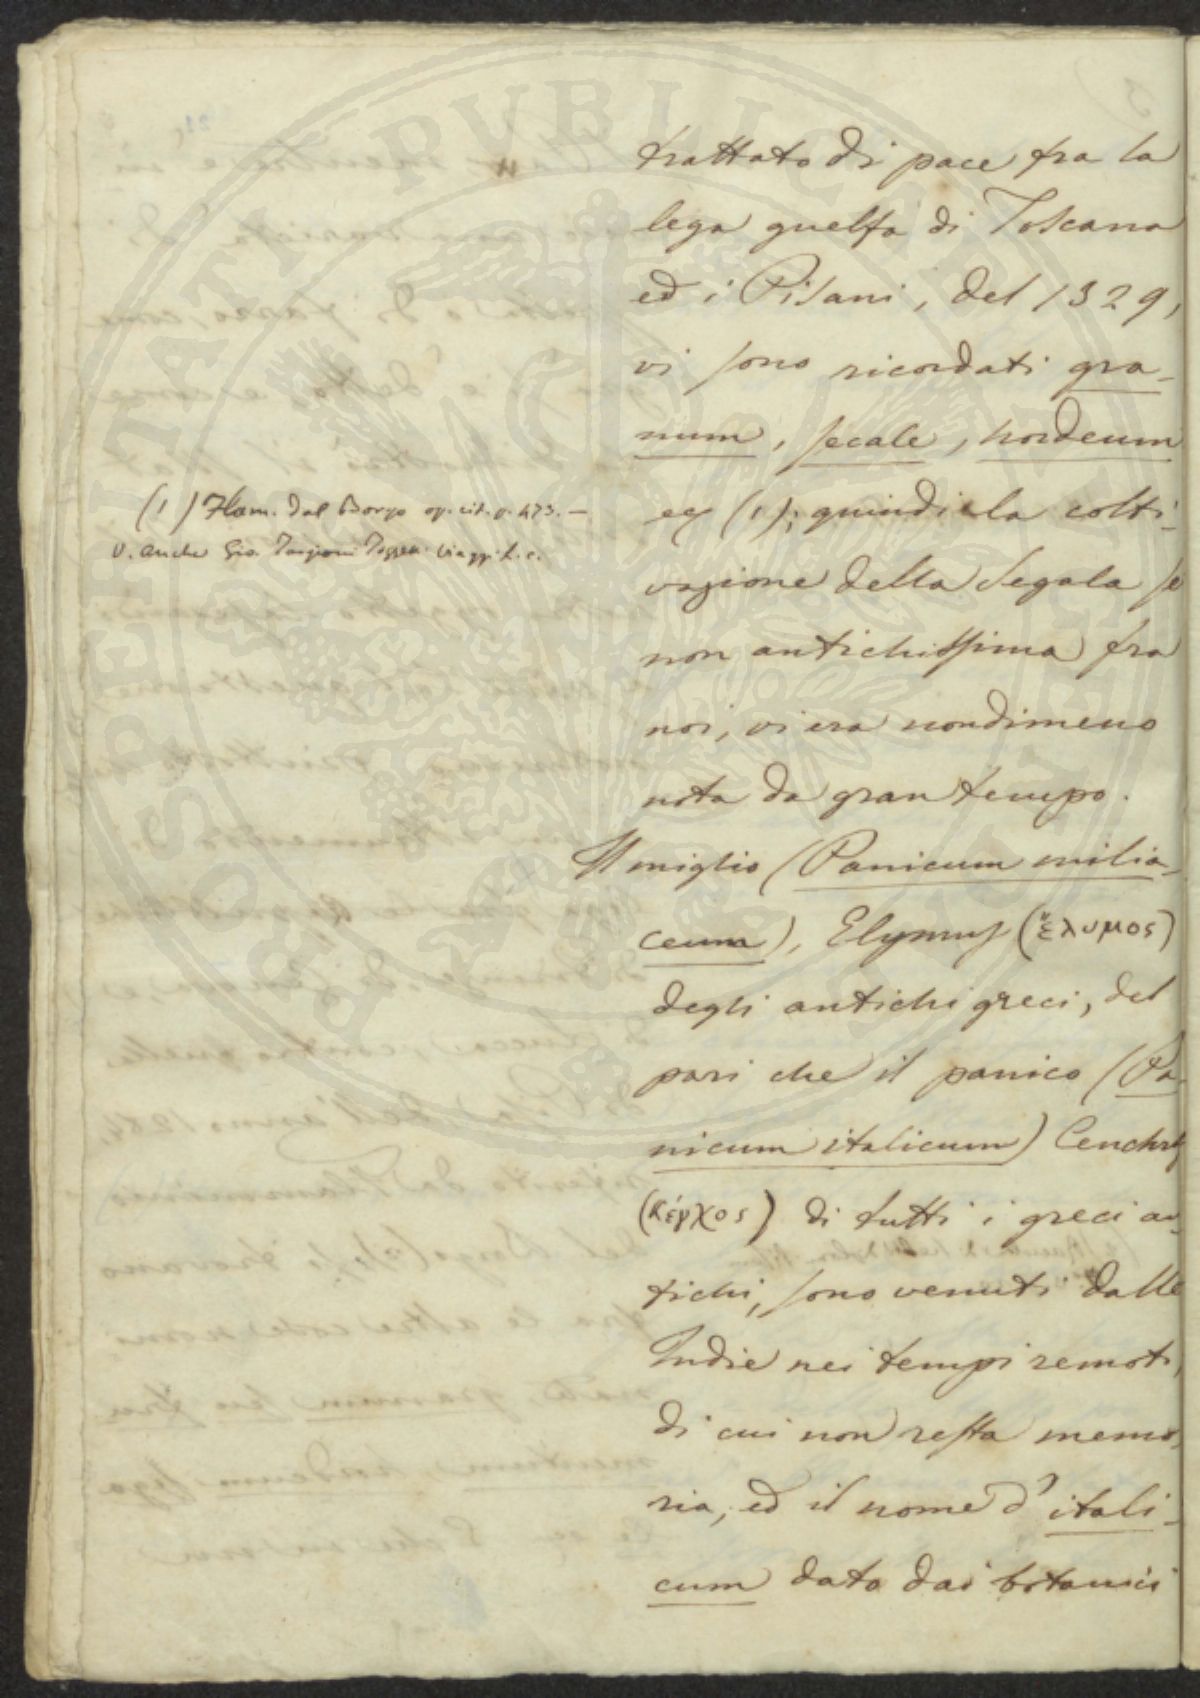 trattato di pace fra la
lega guelfa di Toscana
ed i Pisani, del 1329,
vi sono ricordati gra-
num, secale, hordeum
ec (1); quindi la colti-
vazione della Segala se
non antichissima fra
noi, vi era nondimeno
nota da gran tempo.
Il miglio (Panicum milia-
ceum), Elymus (ἔλυμος)
degli antichi greci, del
pari che il panico (Pa-
nicum italicum) Cenchrus
(Κέγχος) di tutti i greci an-
tichi, sono venuti dalle
Indie nei tempi remoti,
di cui non resta memo-
ria, ed il nome d'itali-
cum dato dai botanici
(1) Flam. Dal Borgo op. cit. p. 473. —
V. anche Gio. Targioni Tozzetti Viaggi l. c.
PROSPERITATI PUBLICAE